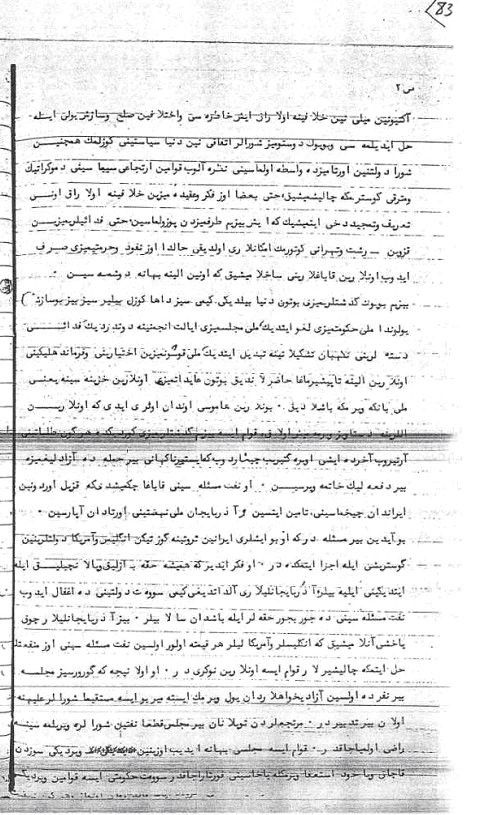 83
س ۲
آکتیونین میلی نین خلافینه اولاراق ایش خاطره سی واختلافین صلح وسازش یولی ایله
حل ایدیلمه سی وبویوک دوستومیز شورالر اتفاقی نین دنیا سیاستینی کوزلمک همچنین
شورا دولتنین اورتامیزده واسطه اولماسینی نظره آلوب قوامین ارتجاعی سیماسینی دموکراتیک
ومترقی کوسترمکه چالیشمیشیق حتی بعضا اوز فکروعقیده میزین خلافینه اولاراق اونی
تعریف وتمجید دخی ایتمیشیک که ایش بیزیم طرفیمزدن پوزولماسین حتی فدائیلریمیزی
قزوین رشت وتهرانی کوتورمک امکانلاری اولدیقی حالدا اوز نفوذ وحرمتیمیزی صرف
ایدوب اونلارین قاباغلارینی ساخلامیشیق که اونین الینه بهانه دوشمه سین .
بیزیم بویوک گذشتلریمیزی بوتون دنیا بیلدیکی کیمی سیز داها کوزل بیلیرسیز بیز بوسازش
یولوندا ملی حکومتیمیزی لغو ایتدیک ملی مجلسیمیزی ایالت انجمنینه دوندردیک فدائی
دسته لرینی نگهبان تشکیلاتینه تبدیل ایتدیک ملی قوشونمیزین اختیارینی وفرماندهلیکینی
اونلارین الینه تاپیشیرماغا حاضرلاندیق بوتون عایداتیمیزی اونلارین خزینه سینه یعنی
ملی بانکه ویرمکه باشلادیق . بونلارین هاموسی اوندان اوتری ایدی که اونلارین
آرتیروب آخرده ایشی اویره کتیریب چیخاردوب که ایستورناکهانی بیر حمله ده آزادلیغیمیزه
بیر دفعه لیک خاتمه ویرسین . او نفت مسئله سینی قاباغا چکمیشدی که قزیل اوردونین
ایراندان چیخماسینی تامین ایتسین و آذربایجان ملی نهضتینی اورتادان آپارسین .
بو آیدین بیر مسئله در که او بو ایشلری ایرانین ثروتینه کوز تیکن انگلیس وآمریکا دولتلرینین
گوستریشی ایله اجرا ایتمکده در . او فکر ایدیر که همیشه حقه بازلیق ویالانچیلیق ایله
ایتدیکینی ایلیه بیلر آذربایجانلیلاری آلداتدیغی کیمی سووت دولتینی ده اغفال ایدوب
نفت مسئله سینی ده جوربجور حقه لر ایله باشدان سالا بیلر . بیز آذربایجانلیلار چوق
یاخشی آنلامیشیق که انگلیسلر وآمریکا لیلر هر قیمته اولور اولسین نفت مسئله سینی اوز منفعتلر
حل ایتمکه چالیشیرلار قوام ایسه اونلارین نوکری در . او اولا نیجه که گورورسیز مجلسه
بیر نفرده اولسین آزادیخواهلاردان یول ویرمک ایسته میر بو ایسه مستقیما شورالر علیهنه
اولان بیر تدبیر در . مرتجعلردن توپلانان بیر مجلس قطعا نفتین شورالره ویریلمه سینه
راضی اولمیاجاقدر . قوام ایسه مجلسی بهانه ایدیب اوزینین ویردیکی سوزدن
قاچاق ویا خود استعفا ویرمکه یاخاسینی قورتاراجاقدر سووت حکومتی ایسه قوامین ویردیکی